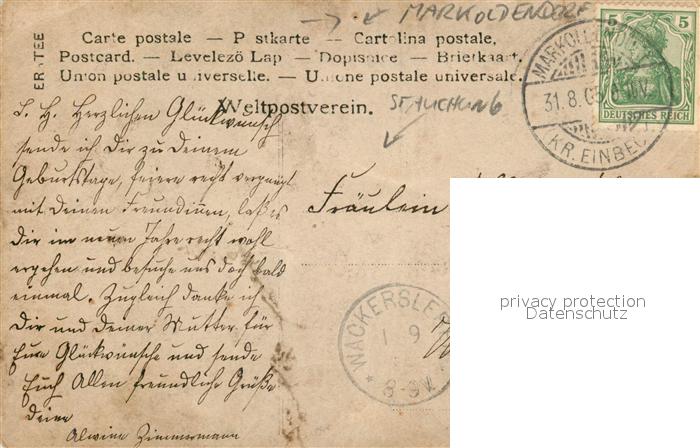 MARKOLDENDORF
ER TEE
Carte postale — P stkarte — Cartolina postale,
Postcard. — Levelező Lap — Dopisnice — Briefkaart,
Union postale u iverselle. — U ione postale universale.
Weltpostverein.
STAUCHUNG
5 5
DEUTSCHES REICH
MARKOLDENDORF
31.8.05
KR. EINBECK
L. H. Herzlichen Glückwunsch
sende ich Dir zu Deinem
Geburtstage, feiere recht vergnügt
mit Deinen Freundinnen, laß es
Dir im neuen Jahre recht wohl
ergehen und besuche uns doch bald
einmal. Zugleich danke ich
Dir und Deiner Mutter für
Eure Glückwünsche und sende
Euch Allen freundliche Grüße
Deine
Alwine Zimmermann
Fräulein
WACKERSLE
1 9
8-9V.
privacy protection
Datenschutz